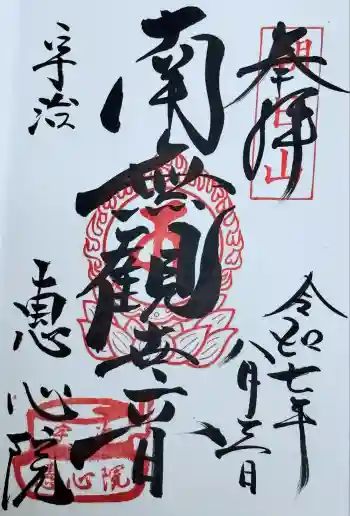 奉拝
朝日山
令和七年
八月三日
南無観世音
宇治
恵心院